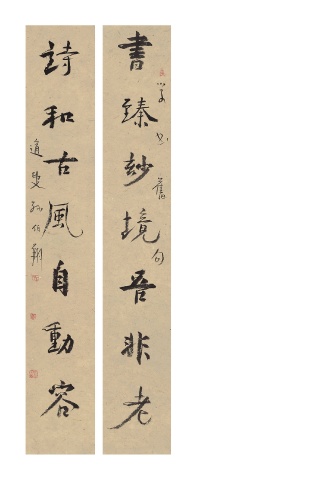 書臻妙境吾非老
書舊句
詩和古風自動容
孫伯翔